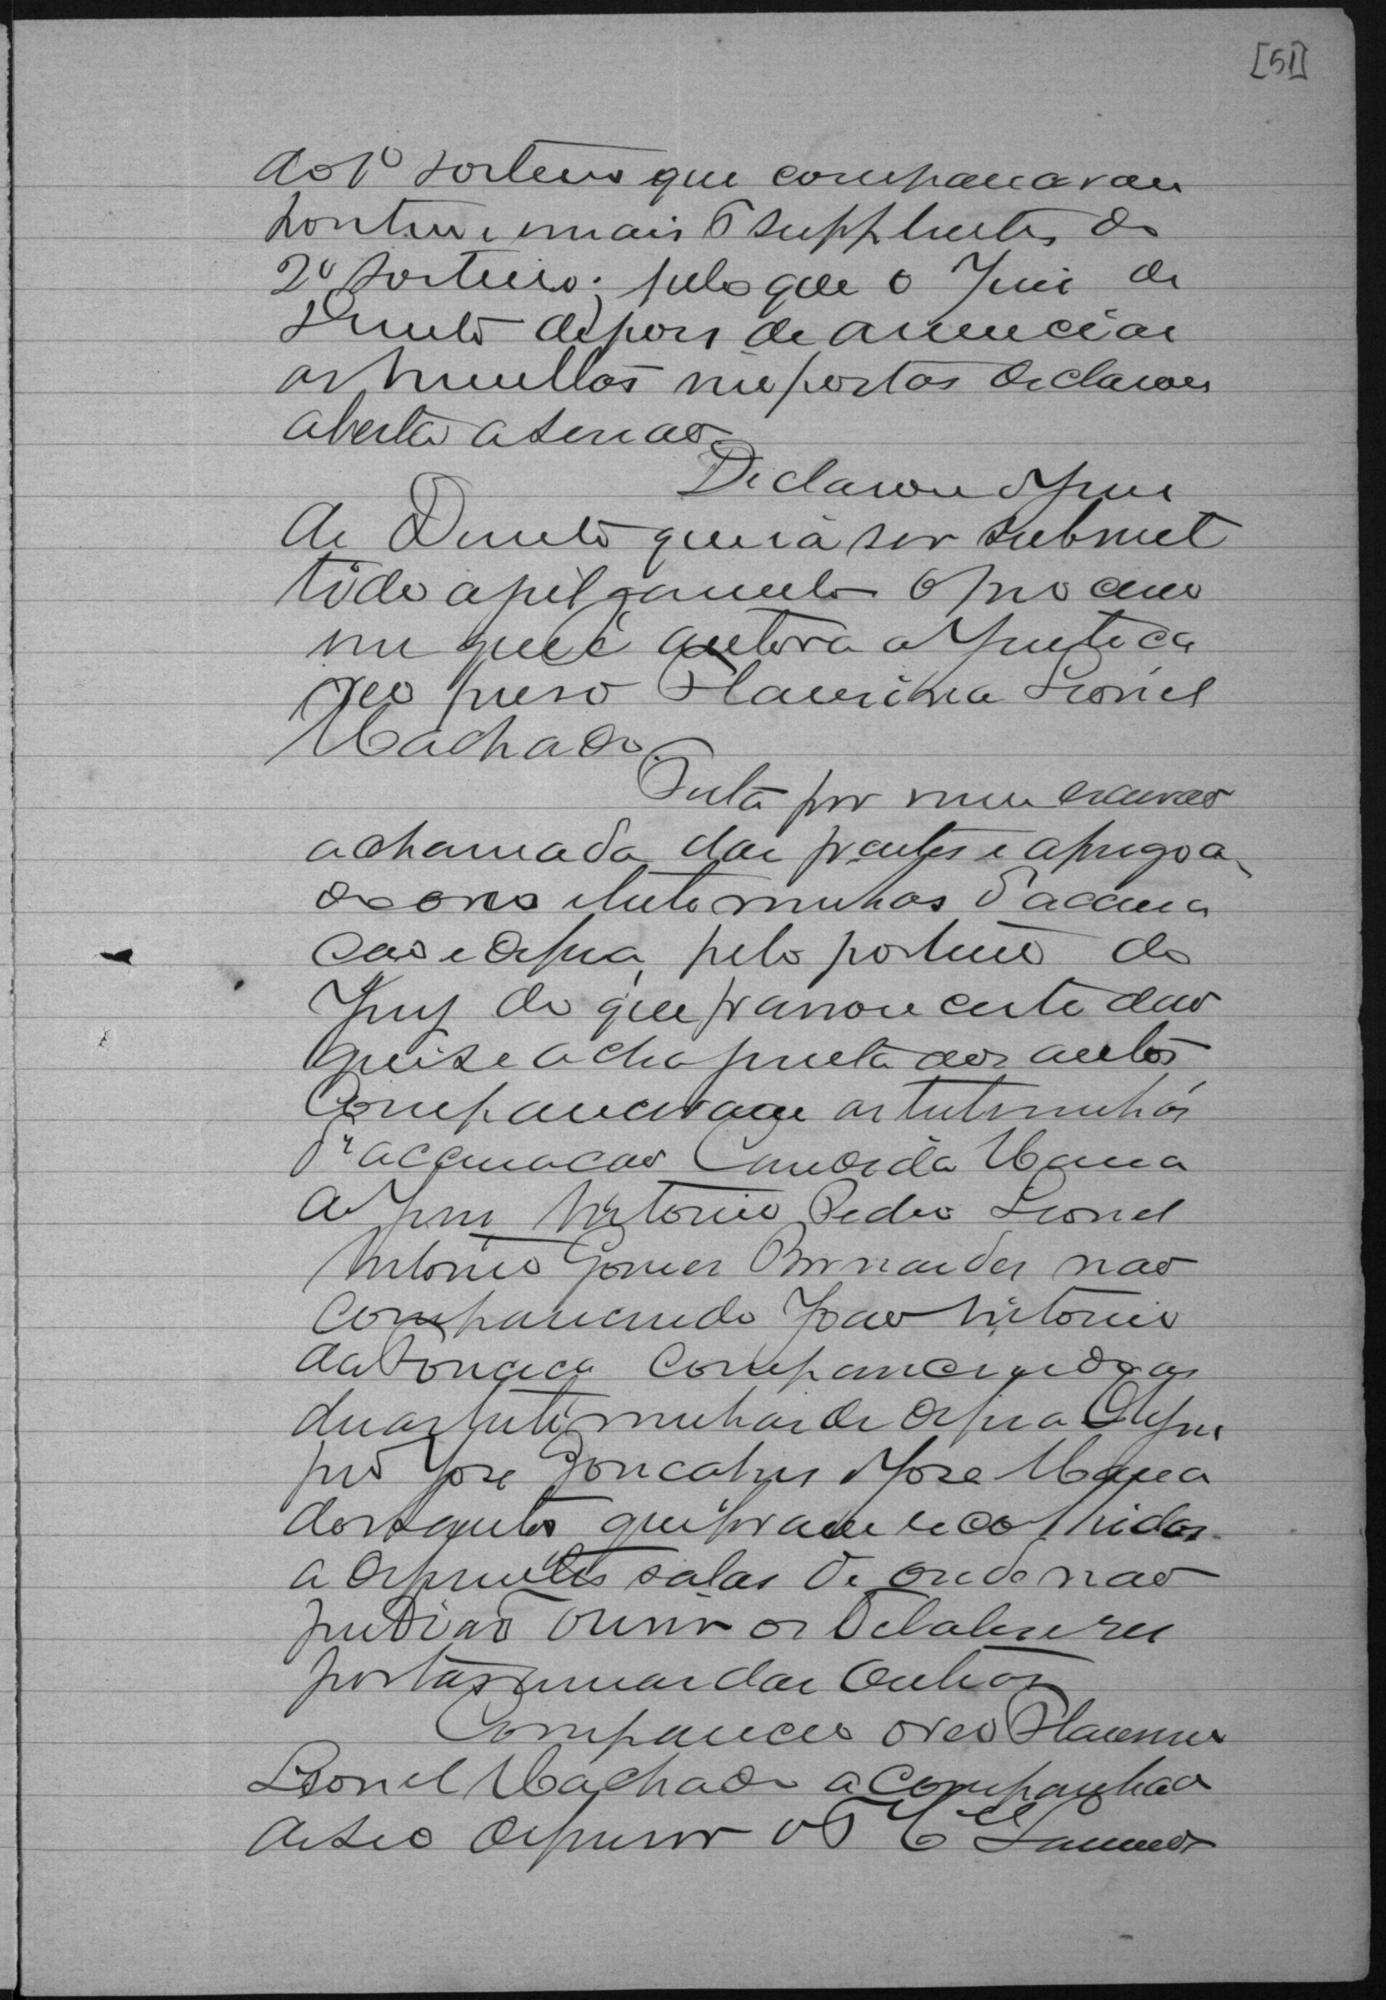 [51]
do 1º sorteio que compareceram
hontem e mais 5 supplentes do
2º sorteio; pelo que o Juiz de
Direito depois de annunciar
as multas impostas declarou
aberta a sessão.
Declarou o Juiz
de Direito que ia ser submet
tido a julgamento o processo
em que é autora a Justiça
reo preso Flausina Leonel
Machado.
Feita por mim escrivão
a chamada das partes e apregoa
dos os reos e testemunhas d'accusa
ção e defesa, pelo porteiro do
Jury do que passou certidão
que se acha junta aos autos
Compareceram as testemunhas
d' accusação Candida Maria
de Jesus Antonio Pedro Leonel
Antonio Gomes Bernardes não
comparecendo João Antonio
da Fonseca comparecendo as
duas testemunhas de defesa Olym
pio José Gonçalves e José Maria
dos Santos que foram recolhidas
a differentes salas de onde não
podião ouvir os debates e res
postas umas das outras
Compareceo o reo
Leonel Machado acompanhado
de seo defensor o